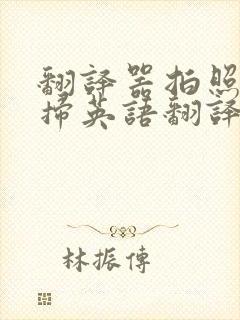 翻譯器拍照
掃英語翻譯
林振傳